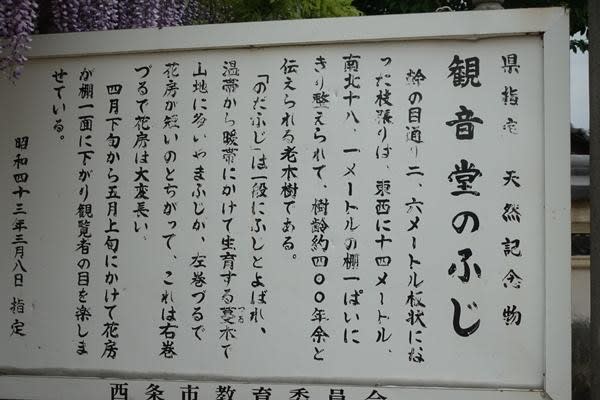 県指定 天然記念物
観音堂のふじ
幹の目通り二、六メートル板状にな
った枝張りは、東西に十四メートル、
南北十八、一メートルの棚一ぱいに
きり整えられて、樹齢約四〇〇年余と
伝えられる老木樹である。
「のだふじ」は一般にふじとよばれ、
温帯から暖帯にかけて生育する蔓木で
つる
山地に多いやまふじが、左巻づるで
花房が短いのとちがって、これは右巻
づるで花房は大変長い、
四月下旬から五月上旬にかけて花房
が棚一面に下がり観覧者の目を楽しま
せている。
昭和四十三年三月八日 指定
西条市教育委員会